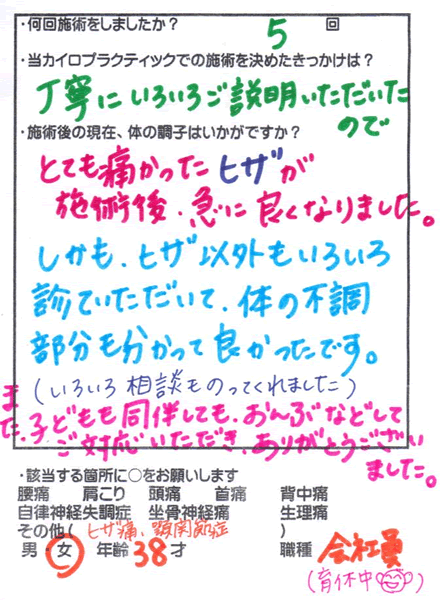 ・何回施術をしましたか？ 5 回
・当カイロプラクティックでの施術を決めたきっかけは？
丁寧にいろいろご説明いただいた
ので
・施術後の現在、体の調子はいかがですか？
とても痛かったヒザが
施術後、急に良くなりました。
しかも、ヒザ以外もいろいろ
診ていただいて、体の不調
部分も分かって良かったです。
(いろいろ相談ものってくれました)
また、子どもも同伴しても、おんぶなどして
ご対応いただき、ありがとうござい
ました。
・該当する箇所に○をお願いします
腰痛 肩こり 頭痛 首痛 背中痛
自律神経失調症 坐骨神経痛 生理痛
その他( ヒザ痛、顎関節症 )
男・女 年齢 38 才 職種 会社員
(育休中)